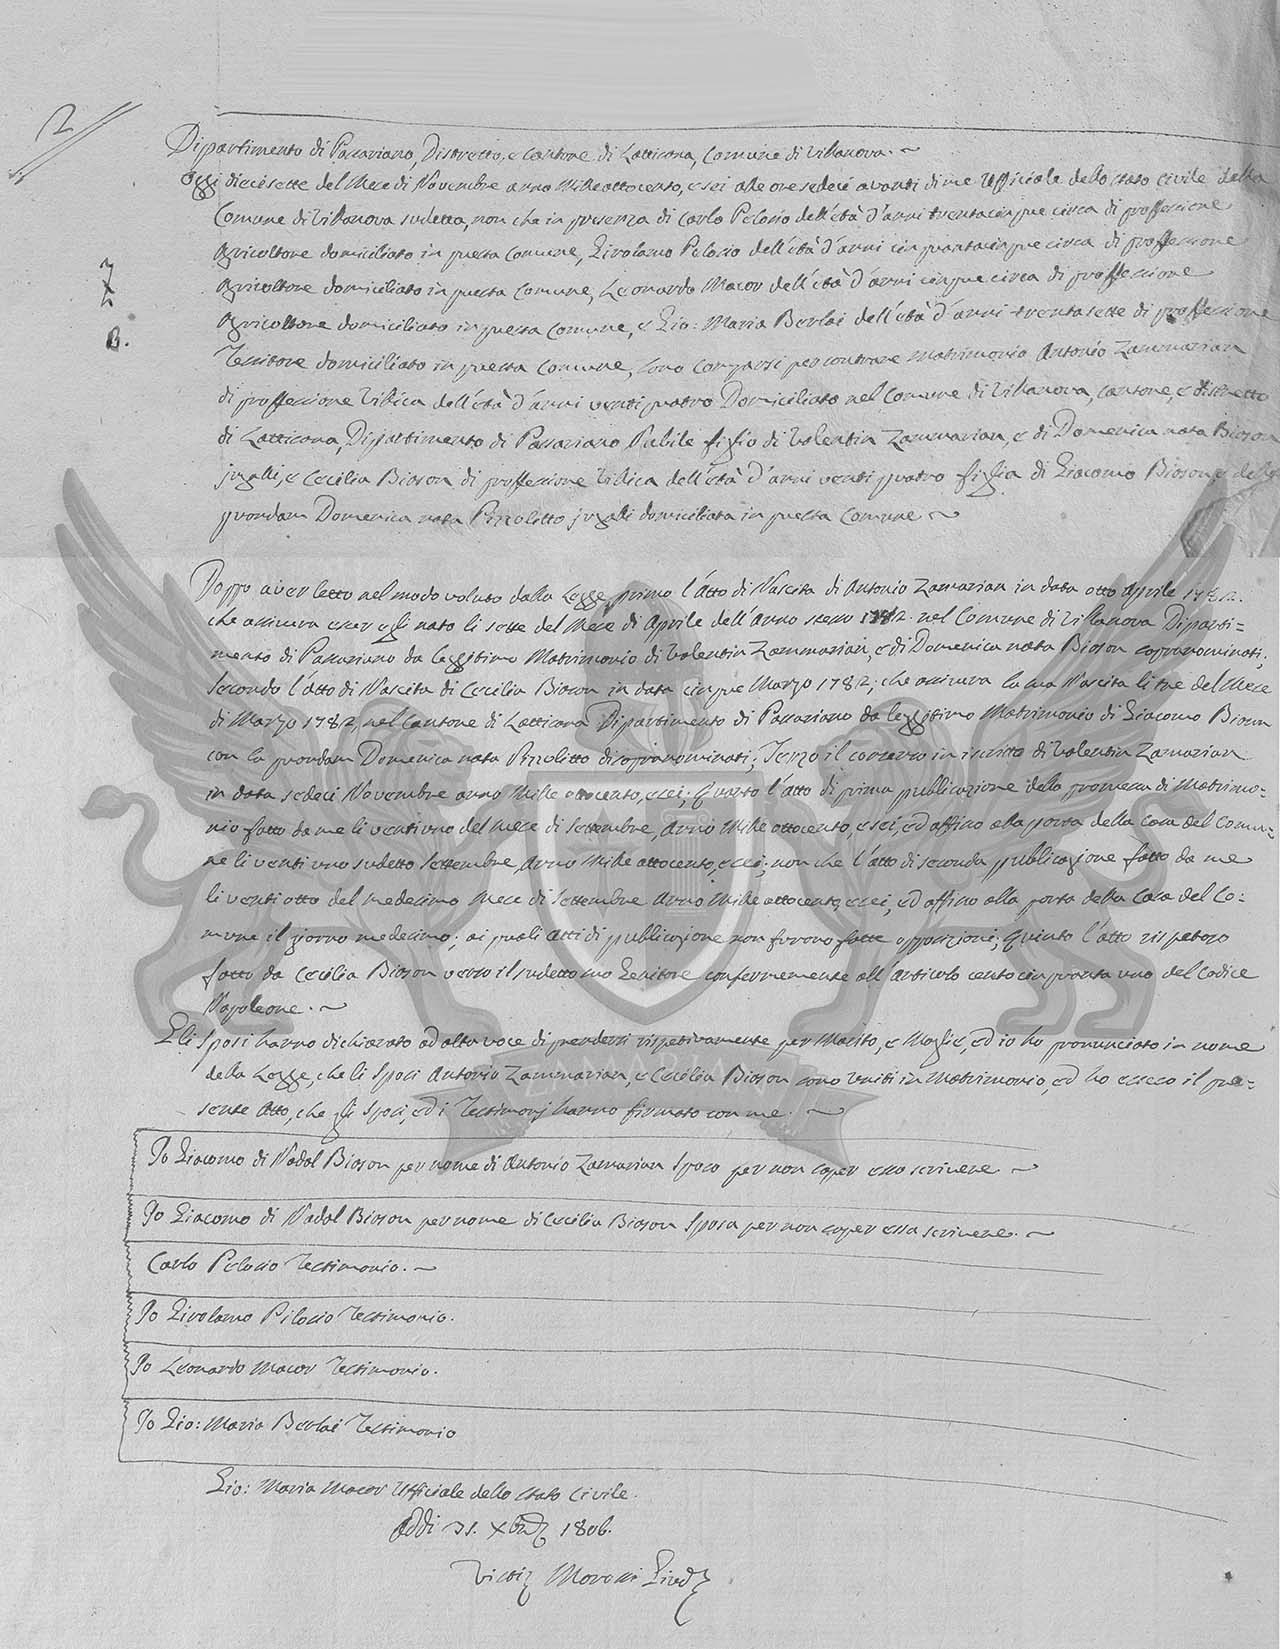 2
Dipartimento di Passariano, Distretto, e Cantone di Latticana, Comune di Villanova.
Oggi diecisette del Mese di Novembre anno Mille ottocento, e sei alle ore sedeci avanti di me Ufficiale dello Stato Civile della
Comune di Villanova sudetta, non che in presenza di Carlo Pelosio dell'età d'anni trentacinque circa di proffessione
Agricoltore domiciliato in questa Comune, Girolamo Pelosio dell'età d'anni cinquantacinque circa di proffessione
Agricoltore domiciliato in questa Comune, Leonardo Macor dell'età d'anni cinque circa di proffessione
Agricoltore domiciliato in questa Comune, e Gio: Maria Berlai dell'età d'anni trentasette di proffessione
B.
Tessitore domiciliato in questa Comune, sono comparsi per contraere Matrimonio Antonio Zammarian
di proffessione Villica dell'età d'anni venti quatro Domiciliato nel Comune di Villanova, Cantone, e Distretto
di Latticana, Dipartimento di Passariano Nubile figlio di Valentin Zammarian, e di Domenica nata Bioson
jugalli, e Cecilia Bioson di proffessione Villica dell'età d'anni venti quatro figlia di Giacomo Bioson e della
quondam Domenica nata jugalli domiciliata in questa Comune
Doppo aver letto nel modo voluto dalla Legge, primo l'Atto di Nascita di Antonio Zamarian in data otto Aprile 1782.
che assicura esser egli nato li sette del Mese di Aprile dell'Anno stesso 1782. nel Comune di Villanova Diparti=
mento di Passariano da leggittimo Matrimonio di Valentin Zammarian, e di Domenica nata Bioson sopranominati;
Secondo l'atto di Nascita di Cecilia Bioson in data cinque Marzo 1782; che assicura la sua Nascita li tre del Mese
di Marzo 1782, nel Cantone di Latticana Dipartimento di Passariano da leggittimo Matrimonio di Giacomo Bioson
con la quondam Domenica nata sopranominati; Terzo il consenso in iscritto di Valentin Zamarian
in data sedeci Novembre anno Mille ottocento, e sei; Quarto l'atto di prima publicazione della promessa di Matrimo=
nio fatto da me li ventiuno del Mese di Settembre, Anno Mille ottocento, e sei, ed affisso alla porta della Casa del Comu=
ne li venti uno sudetto Settembre, Anno Mille ottocento, e sei; non che l'atto di seconda publicazione fatto da me
li venti otto del medesimo Mese di Settembre Anno Mille ottocento, e sei, ed affisso alla porta della Casa del Co=
mune il giorno medesimo; ai quali Atti di publicazione non furono fatte opposizioni; Quinto l'atto rispetoso
fatto da Cecilia Bioson verso il sudetto suo Genitore confermemente all'Articolo cento cinquanta uno del Codice
Napoleone.
Gli Sposi hanno dichiarato ad alta voce di prendersi rispetivamente per Marito, e Moglie, ed io ho pronunciato in nome
della Legge, che li Sposi Antonio Zammarian, e Cecilia Bioson sono Uniti in Matrimonio, ed ho esteso il pre=
sente Atto, che gli Sposi, ed i Testimonj hanno firmato con me.
Io Giacomo di Nadal Bioson per nome di Antonio Zamarian Sposo per non saper esso scrivere
Io Giacomo di Nadal Bioson per nome di Cecilia Bioson Sposa per non saper essa scrivere.
Carlo Pelosio Testimonio.
Io Girolamo Pilosio Testimonio.
Io Leonardo Macor Testimonio.
Io Gio: Maria Berlai Testimonio
Gio: Maria Macor Ufficiale dello Stato Civile.
Addi 31. Xbre 1806.